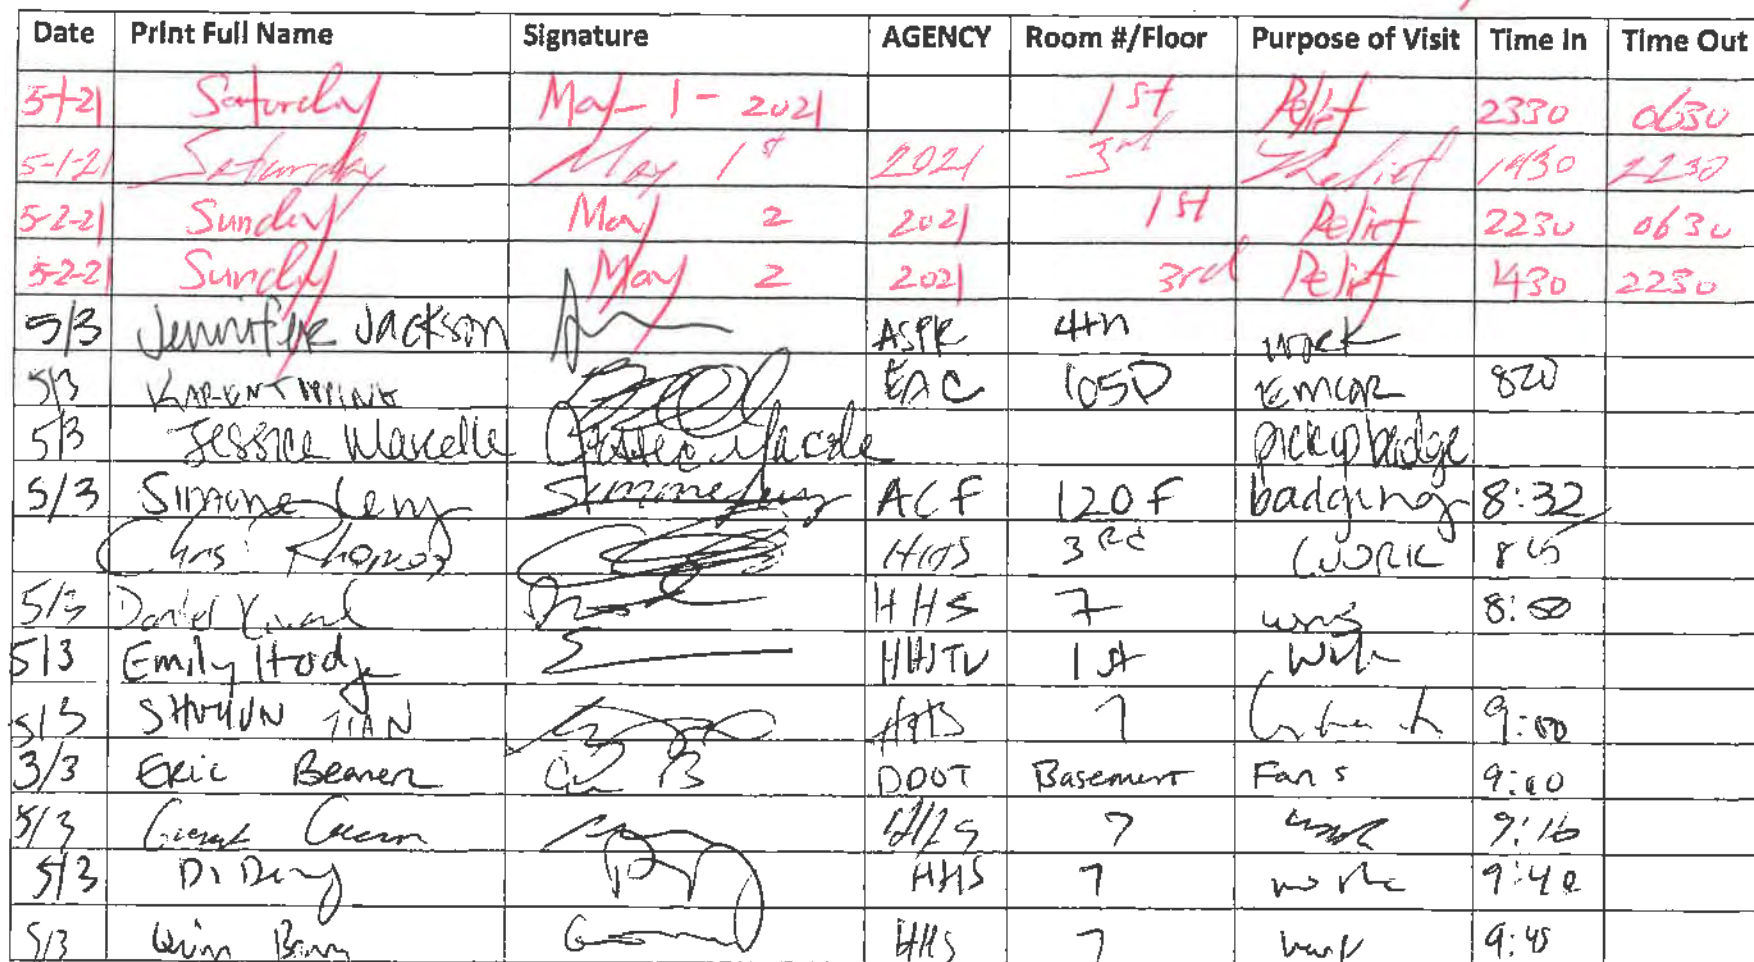 Date Print Full Name Signature AGENCY Room #/Floor Purpose of Visit Time In Time Out
5-1-21 Saturday May-1-2021 1st Relief 2330 0630
5-1-21 Saturday May 1st 2021 3rd Relief 1430 2230
5-2-21 Sunday May 2 2021 1st Relief 2230 0630
5-2-21 Sunday May 2 2021 3rd Relief 1430 2230
5/3 Jennifer Jackson ASPR 4th work
5/3 EAC 105D 820
5/3 Jessica Marcelle pickup badge
5/3 Simone Levy Simone Levy ACF 120F badging 8:32
Chris HHS 3rd WORK
5/3 Daniel HHS 7 8:50
5/3 Emily Hodge 1st Work
5/3 SHUYUN TIAN HHS 7 9:00
3/3 Eric Beaner DDOT Basement Fans 9:10
5/3 HHS 7 work 9:16
5/3 Di Deng HHS 7 work 9:40
5/3 HHS 7 work 9:45